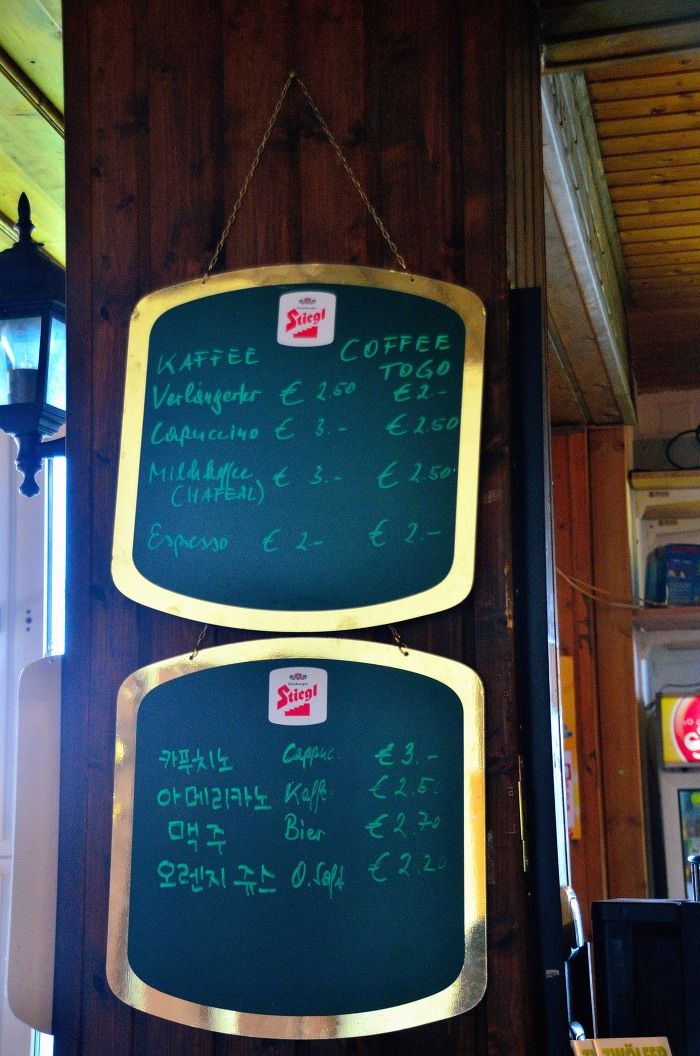 Stiegl
KAFFEE COFFEE TO GO
Verlängerter € 2.50 € 2.-
Capuccino € 3.- € 2.50
Milchkaffee € 3.- € 2.50
(HAFERL)
Espresso € 2.- € 2.-
Salzburger
Stiegl
카푸치노 Cappuc € 3.-
아메리카노 Kaffe € 2.50
맥주 Bier € 2.70
오렌지 쥬스 O.Saft € 2.20